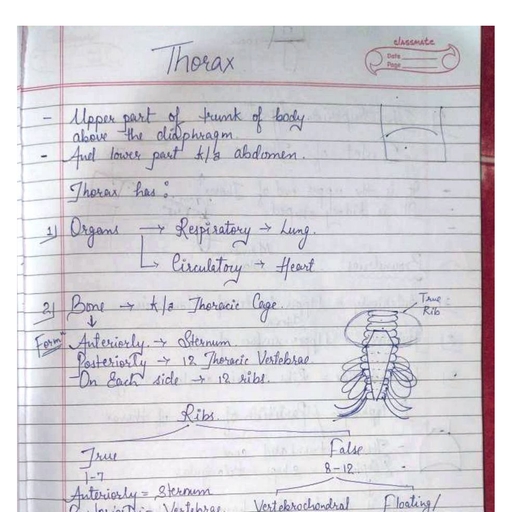 classmate
Date
Page
Thorax
- Upper part of trunk of body
above the diaphragm.
- And lower part k/a abdomen.
Thorax has :
1) Organs → Respiratory → Lung.
→ Circulatory → Heart
2) Bone → k/a Thoracic Cage
True
Rib
Form
Anteriorly → Sternum
Posteriorly → 12 Thoracic Vertebrae
On Each side → 12 ribs.
Ribs
True False
1-7 8-12
Anteriorly = Sternum
Vertebrae Vertebrochondral Floating/